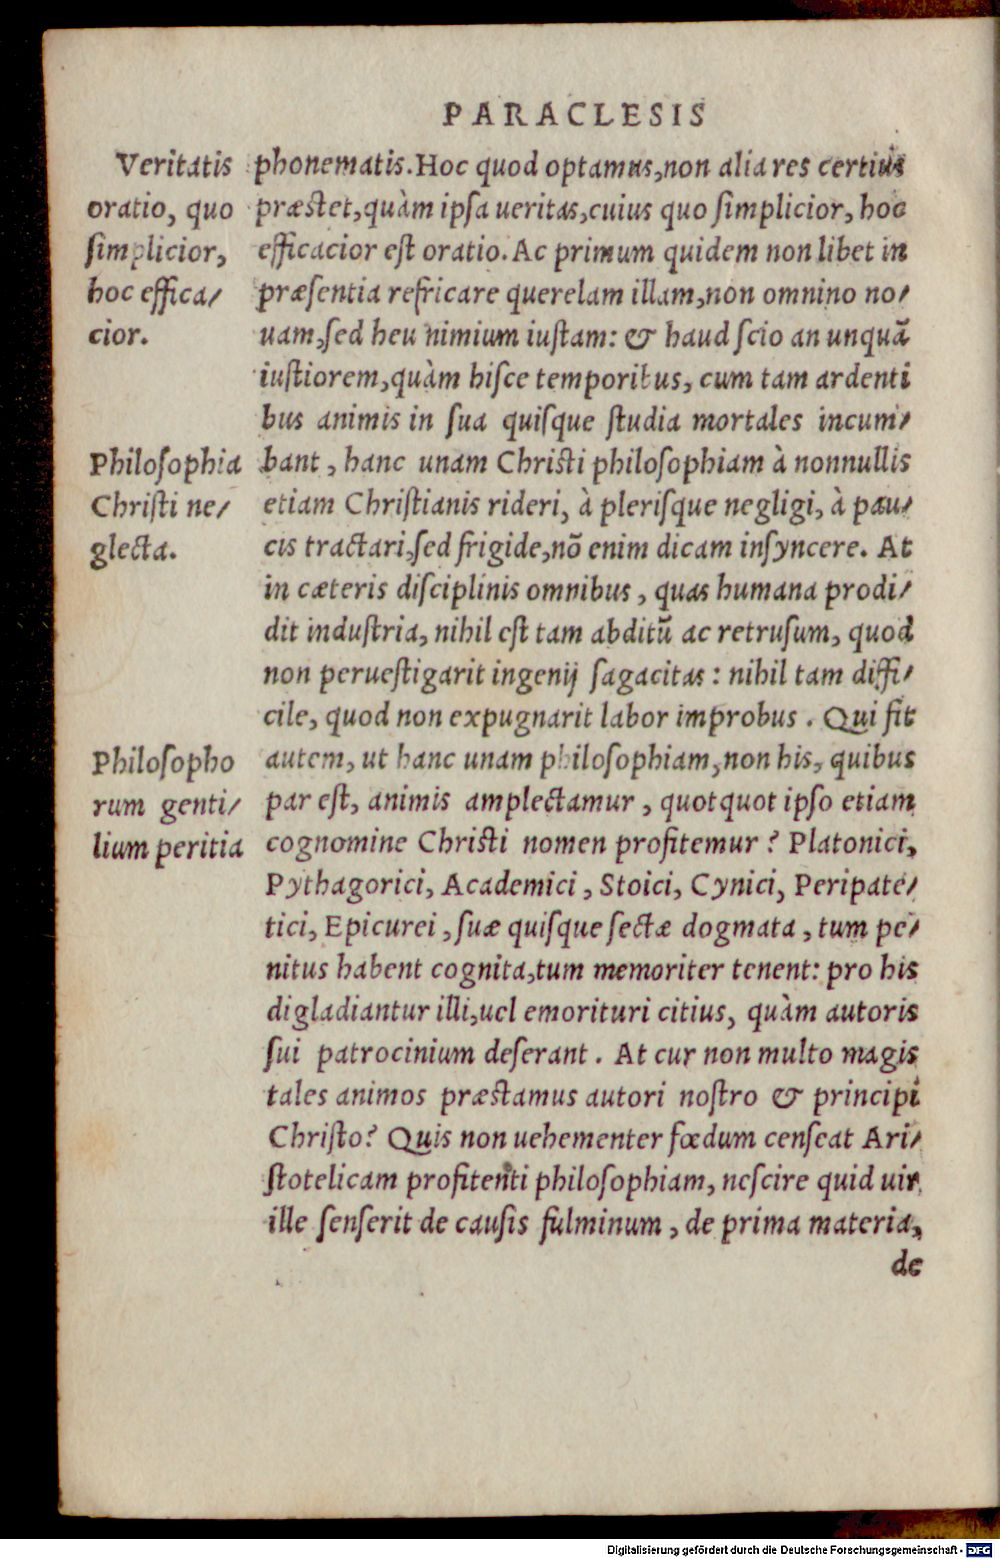 PARACLESIS
Veritatis
oratio, quo
simplicior,
hoc effica/
cior.
Philosophia
Christi ne/
glecta.
Philosopho
rum genti/
lium peritia
phonematis. Hoc quod optamus, non alia res certius
præstet, quàm ipsa ueritas, cuius quo simplicior, hoc
efficacior est oratio. Ac primum quidem non libet in
præsentia refricare querelam illam, non omnino no/
uam, sed heu nimium iustam: & haud scio an unquã
iustiorem, quàm hisce temporibus, cum tam ardenti
bus animis in sua quisque studia mortales incum/
bant, hanc unam Christi philosophiam à nonnullis
etiam Christianis rideri, à plerisque negligi, à pau/
cis tractari, sed frigide, nõ enim dicam insyncere. At
in cæteris disciplinis omnibus, quas humana prodi/
dit industria, nihil est tam abditũ ac retrusum, quod
non peruestigarit ingenij sagacitas: nihil tam diffi/
cile, quod non expugnarit labor improbus. Qui fit
autem, ut hanc unam philosophiam, non his, quibus
par est, animis amplectamur, quotquot ipso etiam
cognomine Christi nomen profitemur? Platonici,
Pythagorici, Academici, Stoici, Cynici, Peripate/
tici, Epicurei, suæ quisque sectæ dogmata, tum pe/
nitus habent cognita, tum memoriter tenent: pro his
digladiantur illi, uel emorituri citius, quàm autoris
sui patrocinium deserant. At cur non multo magis
tales animos præstamus autori nostro & principi
Christo? Quis non uehementer fœdum censeat Ari/
stotelicam profitenti philosophiam, nescire quid uir
ille senserit de causis fulminum, de prima materia,
de
Digitalisierung gefördert durch die Deutsche Forschungsgemeinschaft - DFG